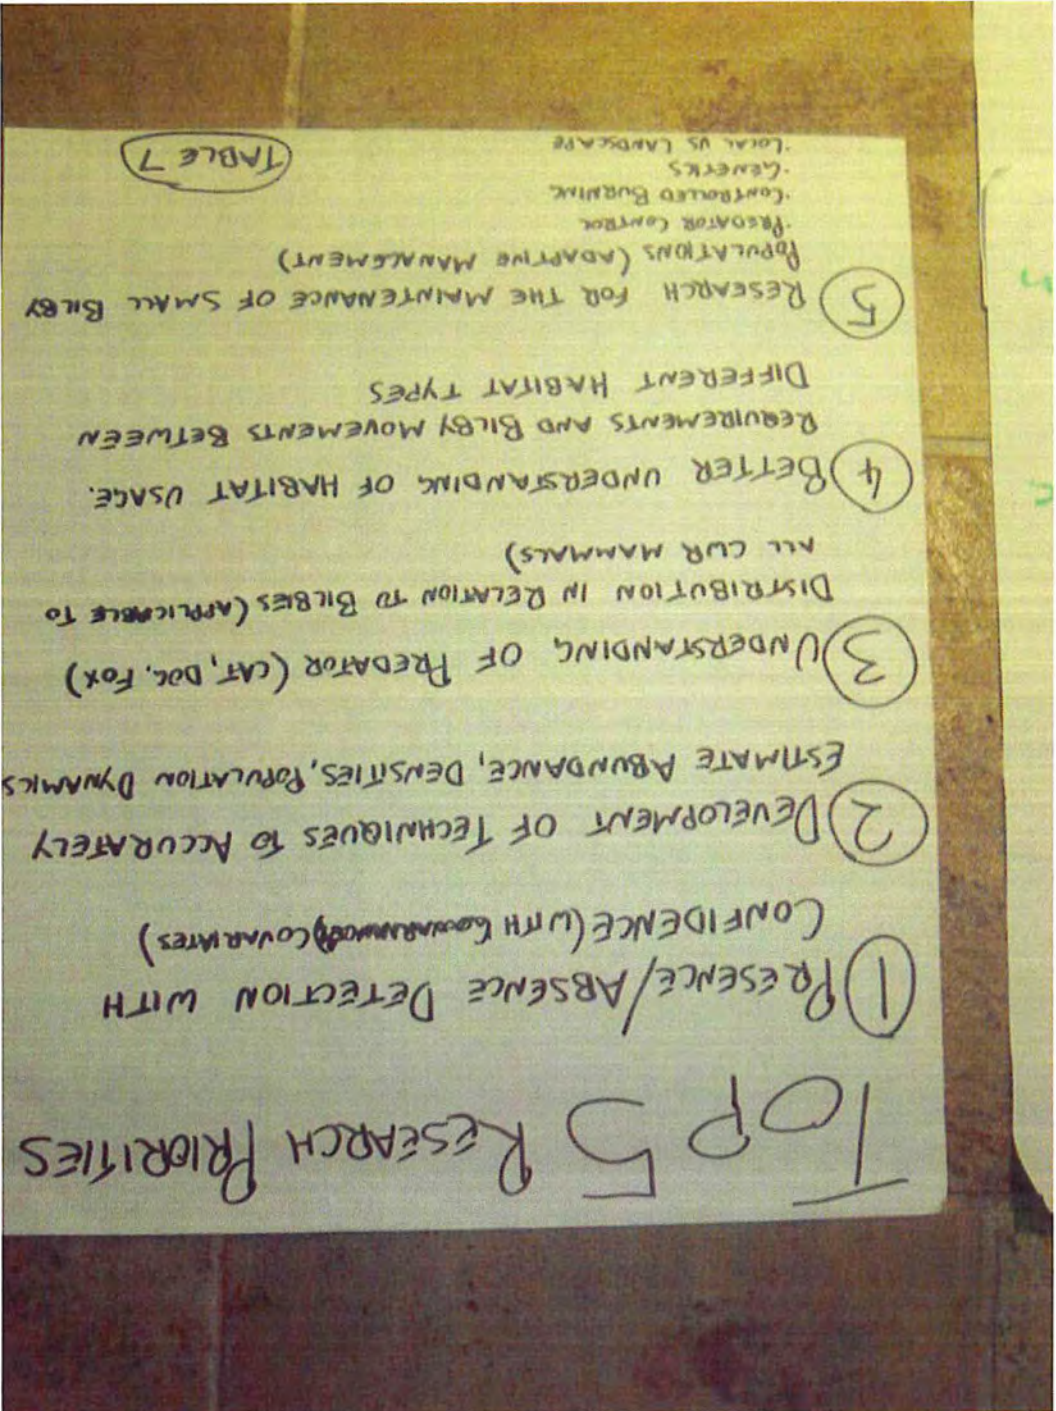 TOP 5 RESEARCH PRIORITIES
1 PRESENCE/ABSENCE DETECTION WITH
CONFIDENCE (WITH COVARIATES)
2 DEVELOPMENT OF TECHNIQUES TO ACCURATELY
ESTIMATE ABUNDANCE, DENSITIES, POPULATION DYNAMICS
3 UNDERSTANDING OF PREDATOR (CAT, DOG, FOX)
DISTRIBUTION IN RELATION TO BILBIES (APPLICABLE TO
ALL CWR MAMMALS)
4 BETTER UNDERSTANDING OF HABITAT USAGE.
REQUIREMENTS AND BILBY MOVEMENTS BETWEEN
DIFFERENT HABITAT TYPES
5 RESEARCH FOR THE MAINTENANCE OF SMALL BILBY
POPULATIONS (ADAPTIVE MANAGEMENT)
·PREDATOR CONTROL
·CONTROLLED BURNING
·GENETICS
·LOCAL VS LANDSCAPE
TABLE 7